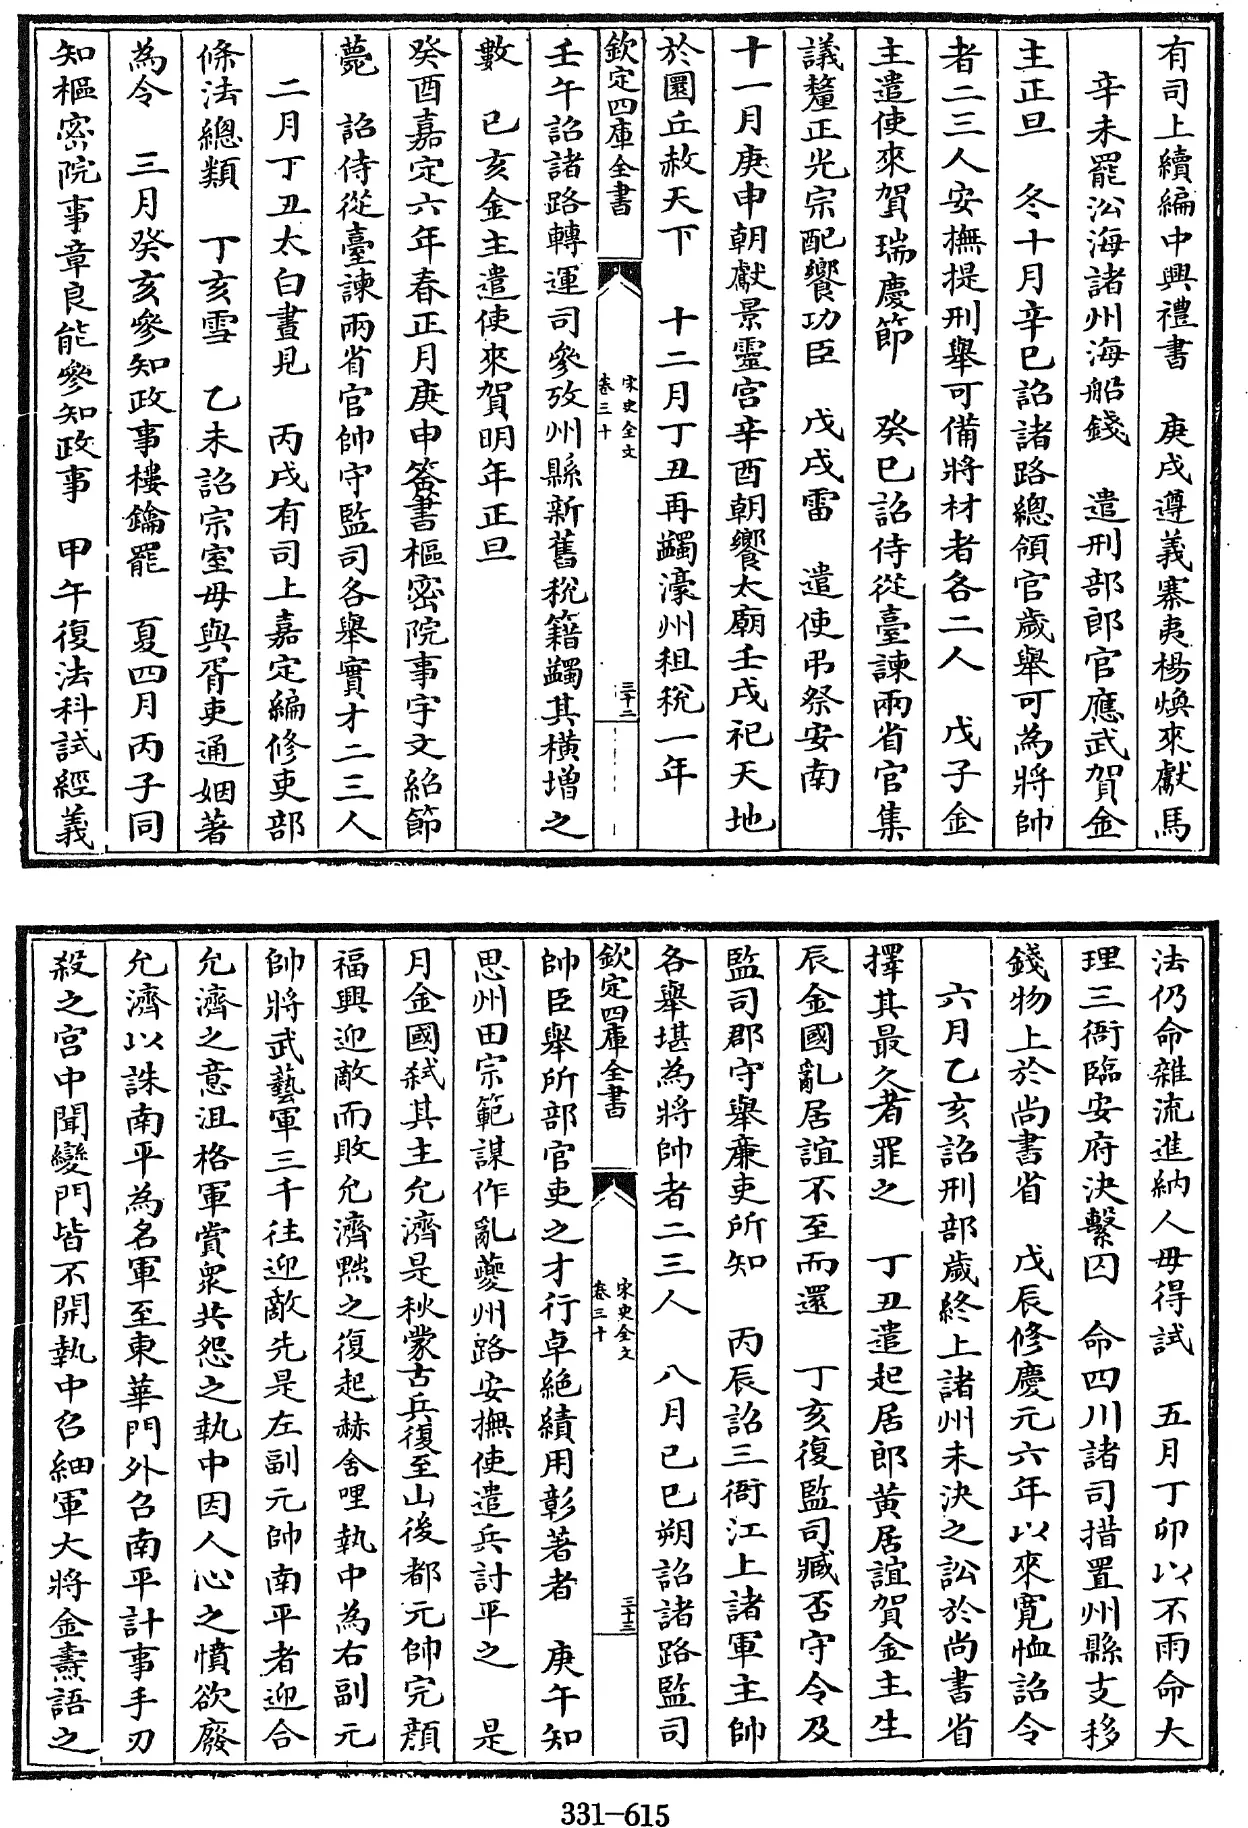 有司上續編中興禮書　庚戌遵義寨夷楊煥來獻馬
辛未罷㳂海諸州海船錢　遣刑部郎官應武賀金
主正旦　冬十月辛巳詔諸路總領官歲舉可為將帥
者二三人安撫提刑舉可備將材者各二人　戊子金
主遣使來賀瑞慶節　癸巳詔侍從臺諫兩省官集
議釐正光宗配饗功臣　戊戌雷　遣使弔祭安南
十一月庚申朝獻景靈宮辛酉朝饗太廟壬戌祀天地
於圜丘赦天下　十二月丁丑再蠲濠州租稅一年
欽定四庫全書
宋史全文
卷三十
三十二
壬午詔諸路轉運司參攷州縣新舊稅籍蠲其橫增之
數　己亥金主遣使來賀明年正旦
癸酉嘉定六年春正月庚申簽書樞密院事宇文紹節
薨　詔侍從臺諫兩省官帥守監司各舉實才二三人
二月丁丑太白晝見　丙戌有司上嘉定編修吏部
條法總類　丁亥雪　乙未詔宗室毋與胥吏通姻著
為令　三月癸亥參知政事樓鑰罷　夏四月丙子同
知樞密院事章良能參知政事　甲午復法科試經義
法仍命雜流進納人毋得試　五月丁卯以不雨命大
理三衙臨安府決繫囚　命四川諸司措置州縣支移
錢物上於尚書省　戊辰修慶元六年以來寬恤詔令
六月乙亥詔刑部歲終上諸州未決之訟於尚書省
擇其最久者罪之　丁丑遣起居郎黃居誼賀金主生
辰金國亂居誼不至而還　丁亥復監司臧否守令及
監司郡守舉廉吏所知　丙辰詔三衙江上諸軍主帥
各舉堪為將帥者二三人　八月己巳朔詔諸路監司
欽定四庫全書
宋史全文
卷三十
三十三
帥臣舉所部官吏之才行卓絶績用彰著者　庚午知
思州田宗範謀作亂夔州路安撫使遣兵討平之　是
月金國弒其主允濟是秋蒙古兵復至山後都元帥完顔
福興迎敵而敗允濟黜之復起赫舍哩執中為右副元
帥將武藝軍三千往迎敵先是左副元帥南平者迎合
允濟之意沮格軍賞衆共怨之執中因人心之憤欲廢
允濟以誅南平為名軍至東華門外召南平計事手刃
殺之宮中聞變門皆不開執中召細軍大將金壽語之
331-615